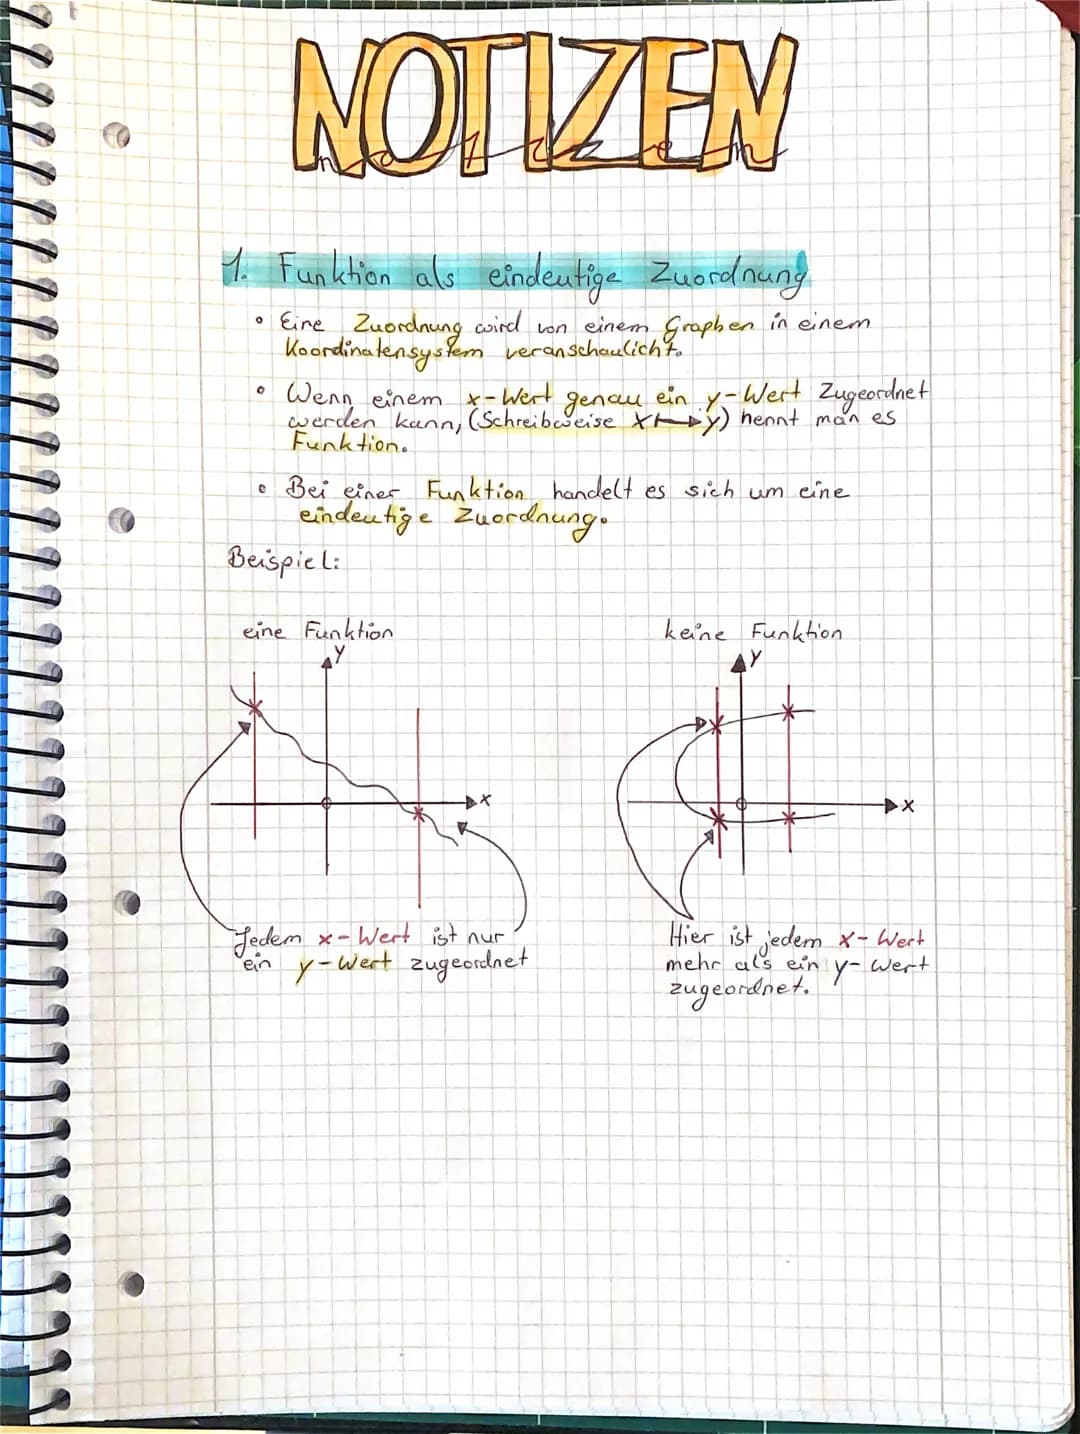 NOTIZEN
notizen
1. Funktion als eindeutige Zuordnung
• Eine Zuordnung wird von einem Graphen in einem
Koordinatensystem veranschaulicht.
• Wenn einem x-Wert genau ein y-Wert Zugeordnet
werden kann, (Schreibweise x↦y) nennt man es
Funktion.
• Bei einer Funktion handelt es sich um eine
eindeutige Zuordnung.
Beispiel:
eine Funktion
y
x
Jedem x-Wert ist nur
ein y-Wert zugeordnet
keine Funktion
y
x
Hier ist jedem x-Wert
mehr als ein y-Wert
zugeordnet.